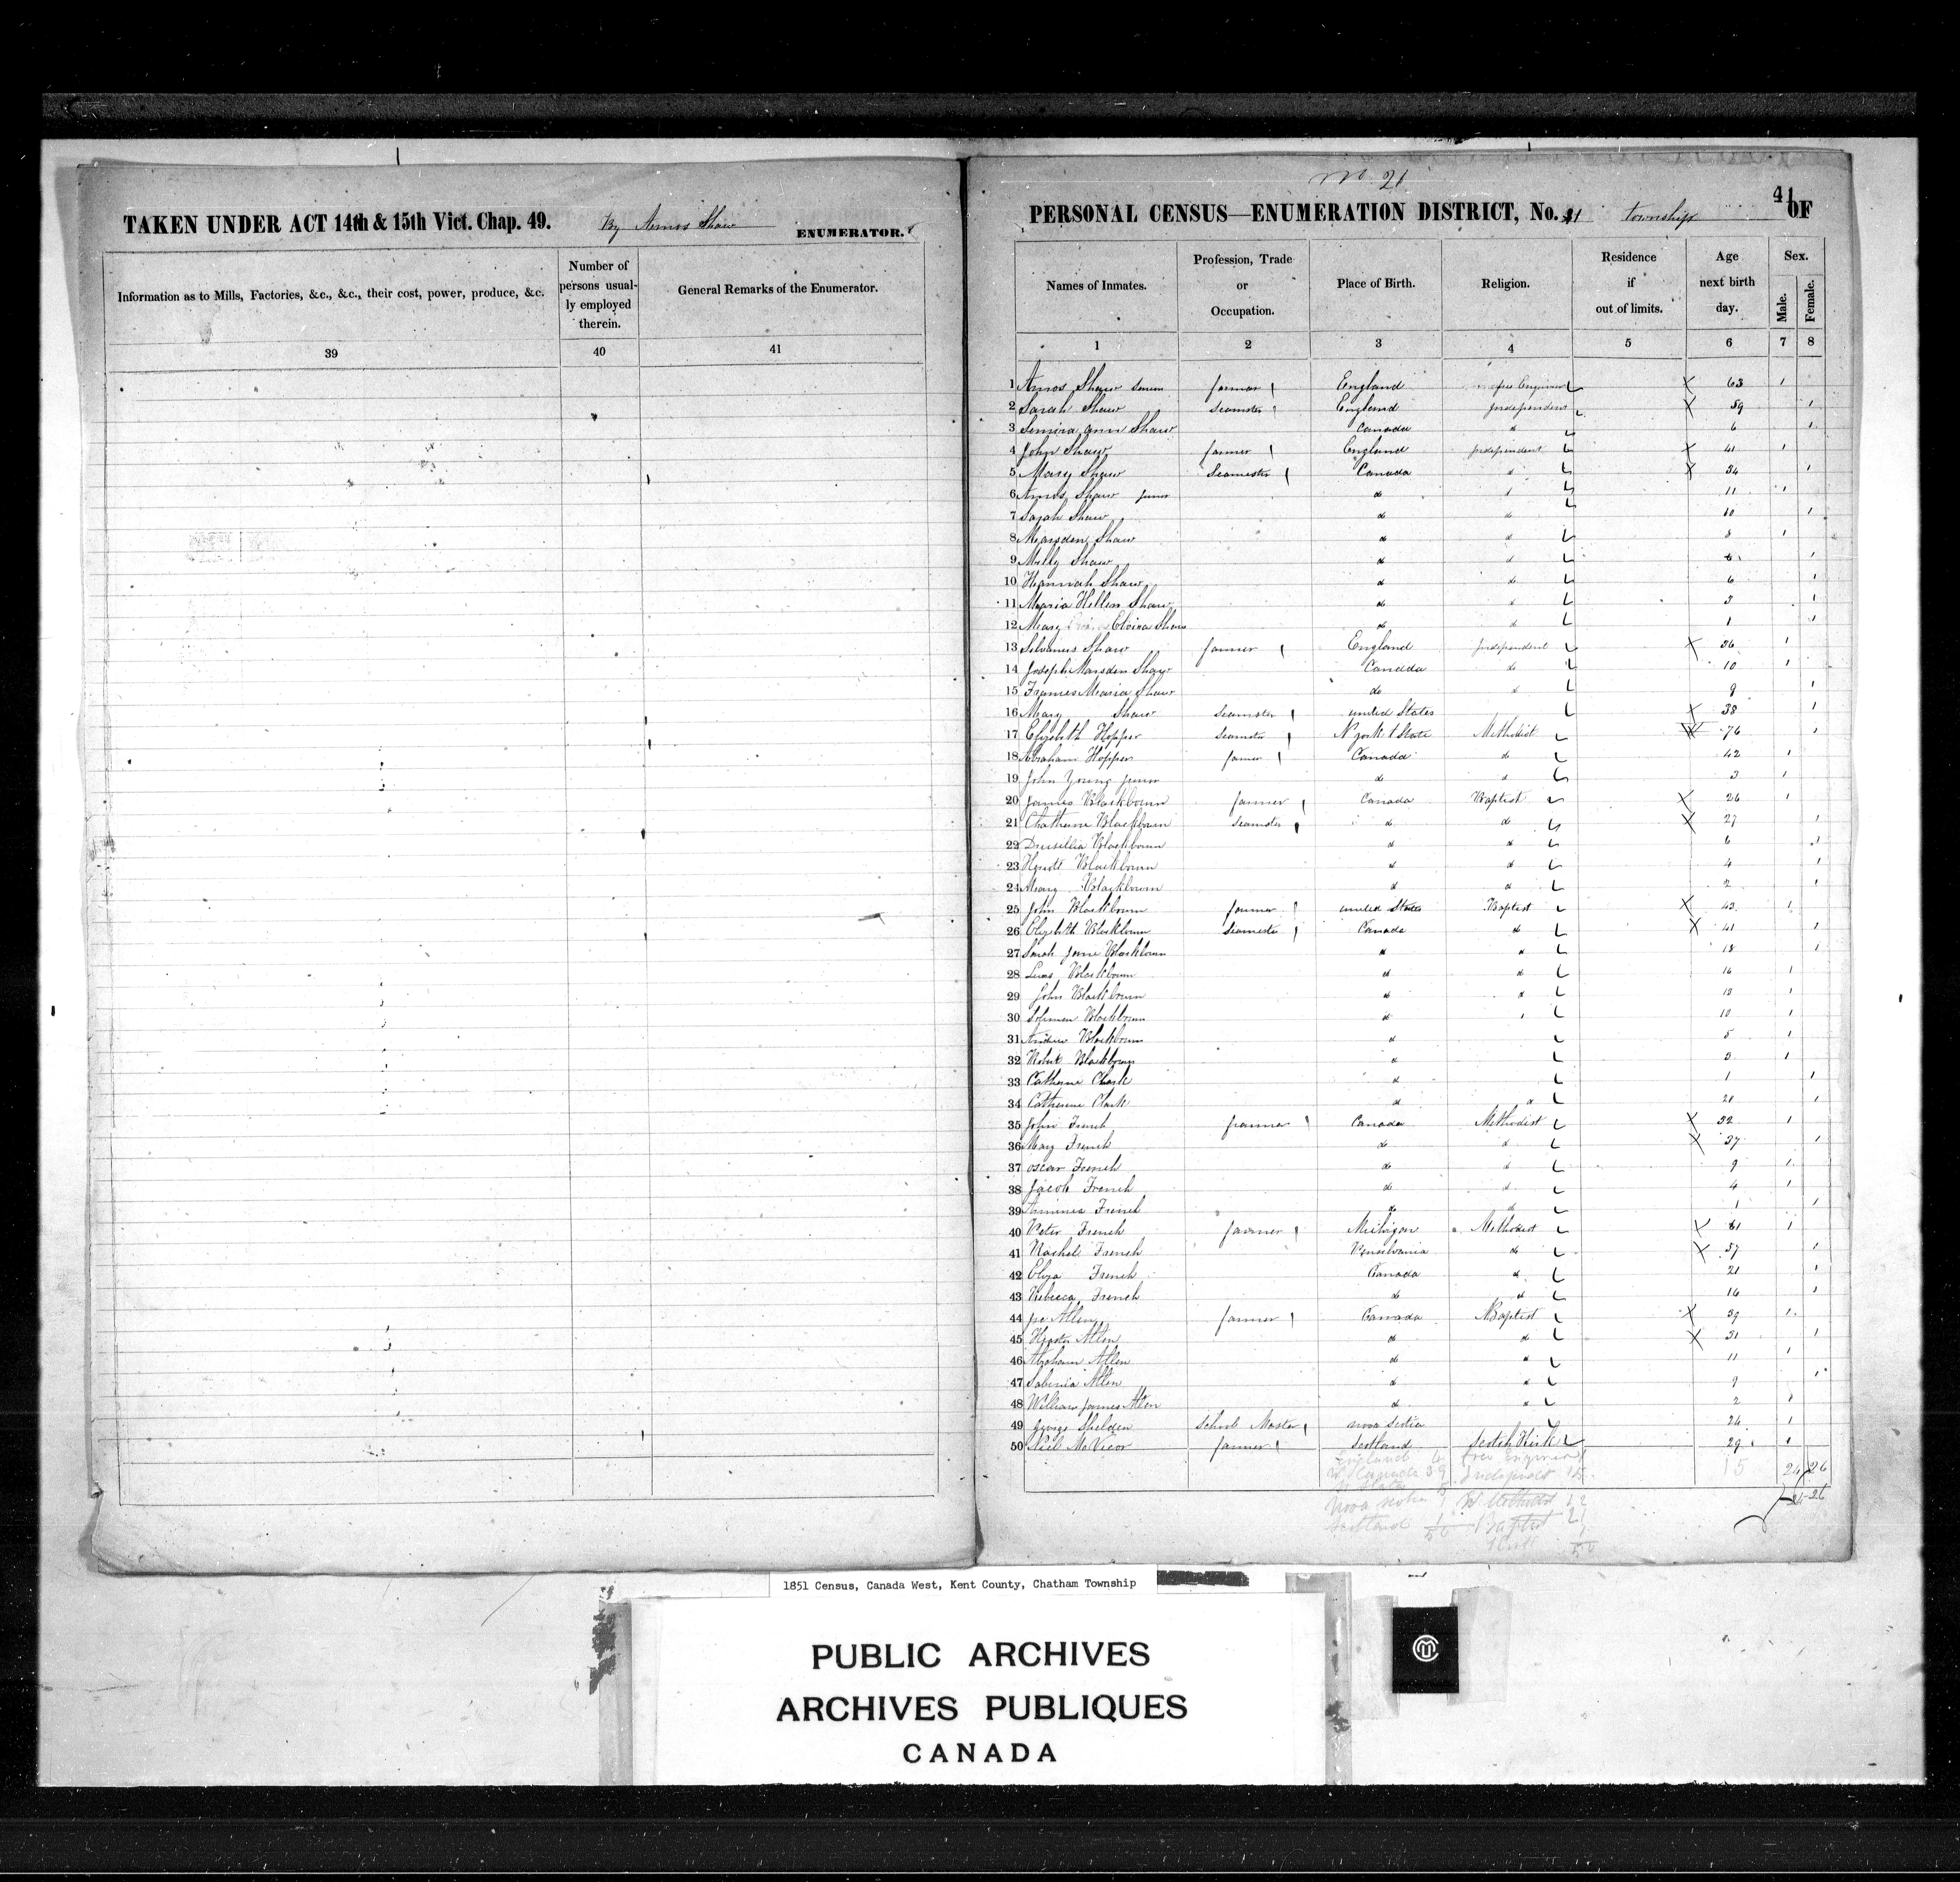 TAKEN UNDER ACT 14th & 15th Vict. Chap. 49. By Amos Shaw ENUMERATOR.
Information as to Mills, Factories, &c., &c., their cost, power, produce, &c.
Number of persons usual-
ly employed
therein.
General Remarks of the Enumerator.
39 40 41
No 21
41
PERSONAL CENSUS—ENUMERATION DISTRICT, No. 21 township OF
Names of Inmates.
Profession, Trade
or
Occupation.
Place of Birth.
Religion.
Residence
if
out of limits.
Age
next birth
day.
Sex.
Male.
Female.
1 2 3 4 5 6 7 8
1 Amos Shaw farmer England 63 1
2 Sarah Shaw Seamster England Independent 59 1
3 Ann Shaw Canada do 6 1
4 John Shaw farmer England Independent 41 1
5 Mary Shaw Seamster Canada do 34 1
6 Amos Shaw junior do do 11 1
7 Sarah Shaw do do 10 1
8 Marsden Shaw do do 8 1
9 Milly Shaw do do 1
10 Hannah Shaw do do 6 1
11 Maria Hellen Shaw do do 3 1
12 Mary Elvira Shaw do do 1 1
13 Silvanus Shaw farmer England Independent 36 1
14 Joseph Marsden Shaw Canada do 10 1
15 Frances Maria Shaw do do 1
16 Mary Shaw Seamster united States 38 1
17 Elizabeth Hopper Seamster N york State Methodist 76 1
18 Abraham Hopper farmer Canada do 42 1
19 John Young junior do do 3 1
20 James Blackbourn farmer Canada Baptist 26 1
21 Chatharine Blackbourn Seamster do do 27 1
22 Drusillia Blackbourn do do 6 1
23 Blackbourn do do 4 1
24 Mary Blackbourn do do 2 1
25 John Blackbourn farmer united States Baptist 43 1
26 Elizabeth Blackbourn Seamster Canada do 41 1
27 Sarah Jane Blackbourn do do 18 1
28 Blackbourn do do 16 1
29 John Blackbourn do do 13 1
30 Soloman Blackbourn do 10 1
31 Andrew Blackbourn do 5 1
32 Robert Blackbourn do 3 1
33 Catharine Clark do 1 1
34 Catherine Clark do do 1
35 John French farmer Canada Methodist 32 1
36 Mary French do do 37 1
37 oscar French do do 9 1
38 Jacob French do do 4 1
39 French do do 1 1
40 Peter French farmer Michigan Methodist 61 1
41 Rachel French Pensilvania do 57 1
42 Eliza French Canada do 21 1
43 Rebecca French do do 16 1
44 Allen farmer Canada Baptist 39 1
45 Hester Allen do do 31 1
46 Abraham Allen do do 11 1
47 Sabrina Allen do do 9 1
48 William James Allen do do 2 1
49 George Shelden School Master nova Scotia 24 1
50 Neil McVicor farmer Scotland Scotch Kirk 29 1
England
Canada 39 Independent
15
24 26
Nova Scotia Methodist 12
24 26
Scotland Baptist 21
50
50
1851 Census, Canada West, Kent County, Chatham Township
PUBLIC ARCHIVES
ARCHIVES PUBLIQUES
CANADA